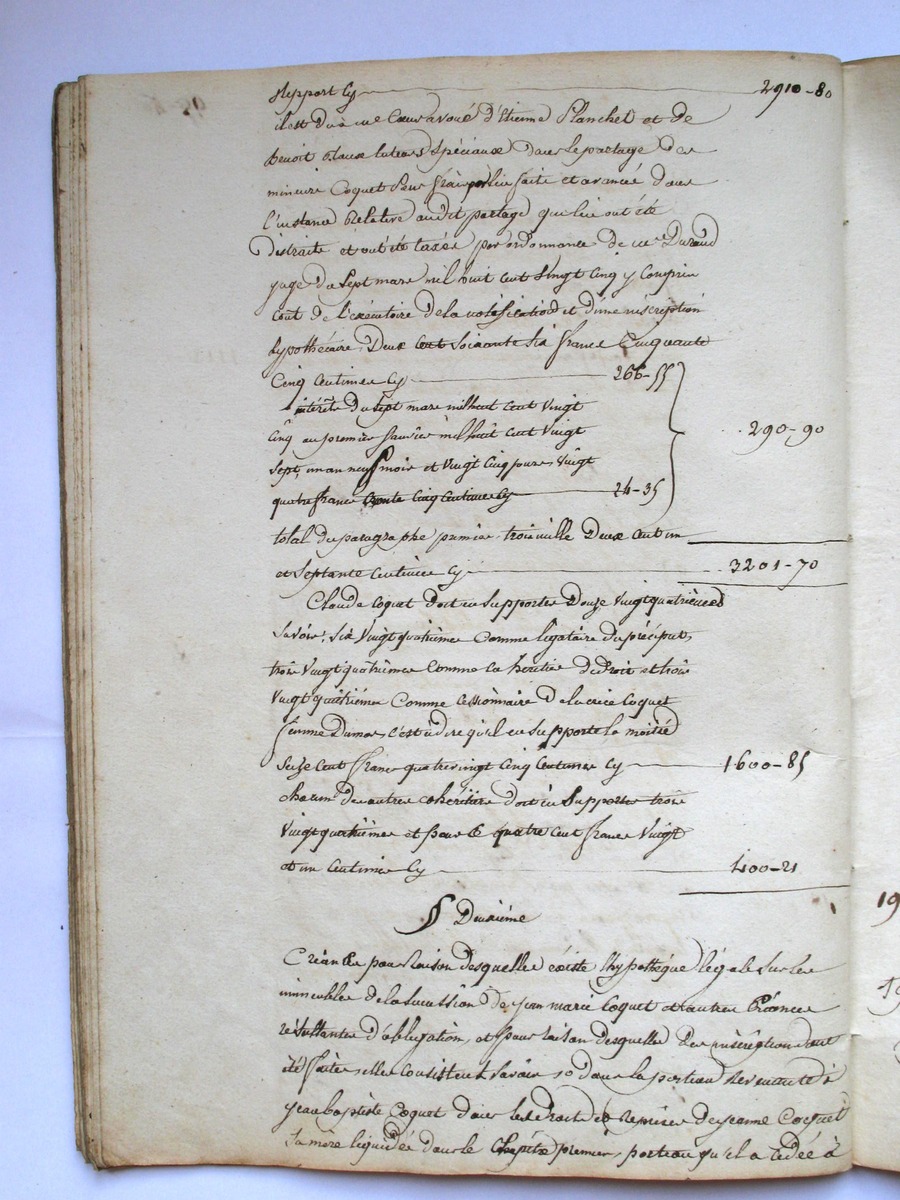 Report cy 2910-80
il est dû à me Cœur avoué d'Etienne Planchet et de
benoit tuteurs spéciaux dans le partage des
mineurs Coquet pour frais par lui faits et avancés dans
l'instance Relative audit partage qui lui ont été
distraits et ont été taxés par ordonnance de mr Durand
juge du Sept mars mil huit cent vingt cinq y Compris
Cout de l'exécutoire de la notification et d'une inscription
hypothécaire, Deux cent Soixante Six francs Cinquante
Cinq Centimes Cy 266-55
intérêts du Sept mars mil huit cent Vingt
Cinq au premier Janvier mil huit cent Vingt 290-90
Sept, un an neuf mois et Vingt Cinq jours Vingt
quatre francs trente Cinq Centimes Cy 24-35
total du paragraphe premier trois mille Deux cent un
et Septante Centimes Cy 3201-70
Claude Coquet doit en Supporter Douze Vingt quatrièmes
Savoir, Six Vingt quatrièmes Comme légataire du préciput,
trois Vingt quatrièmes Comme Co heritier de Droit et trois
Vingt quatrièmes Comme Cessionnaire de Coquet
femme Dumas, c'est à dire qu'il en Supporte la moitié
Seize Cent francs quatre vingt Cinq Centimes Cy 1600-85
chacun des autres Cohéritiers doit en Supporter trois
Vingt quatrièmes et pour Ce quatre Cent francs Vingt
et un Centimes Cy 400-21
§ Deuxième
Créances pour Raison desquelles existe l'hypothèque légale Sur les
immeubles de la Succession de Jean marie Coquet et autres Créances
résultantes d'obligation, et pour raison desquelles des inscriptions ont
été faites, elles Consistent Savoir, 1o dans la portion Revenante à
Jean baptiste Coquet dans les Droits et Reprises de Jeanne Coquet
Sa mère liquidée dans le Chapitre premier, portion qu'il a Cédée à
19